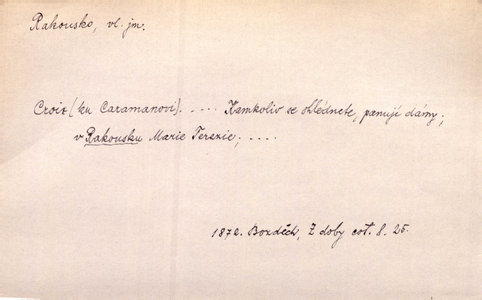 Rakousko, vl. jm.
Croix (ku Caramanovi). . . . . Kamkoliv se ohlédnete, panují dámy;
v Rakousku Marie Terezie; . . . .
1872. Bozděch, Z doby cot. 8. 25.